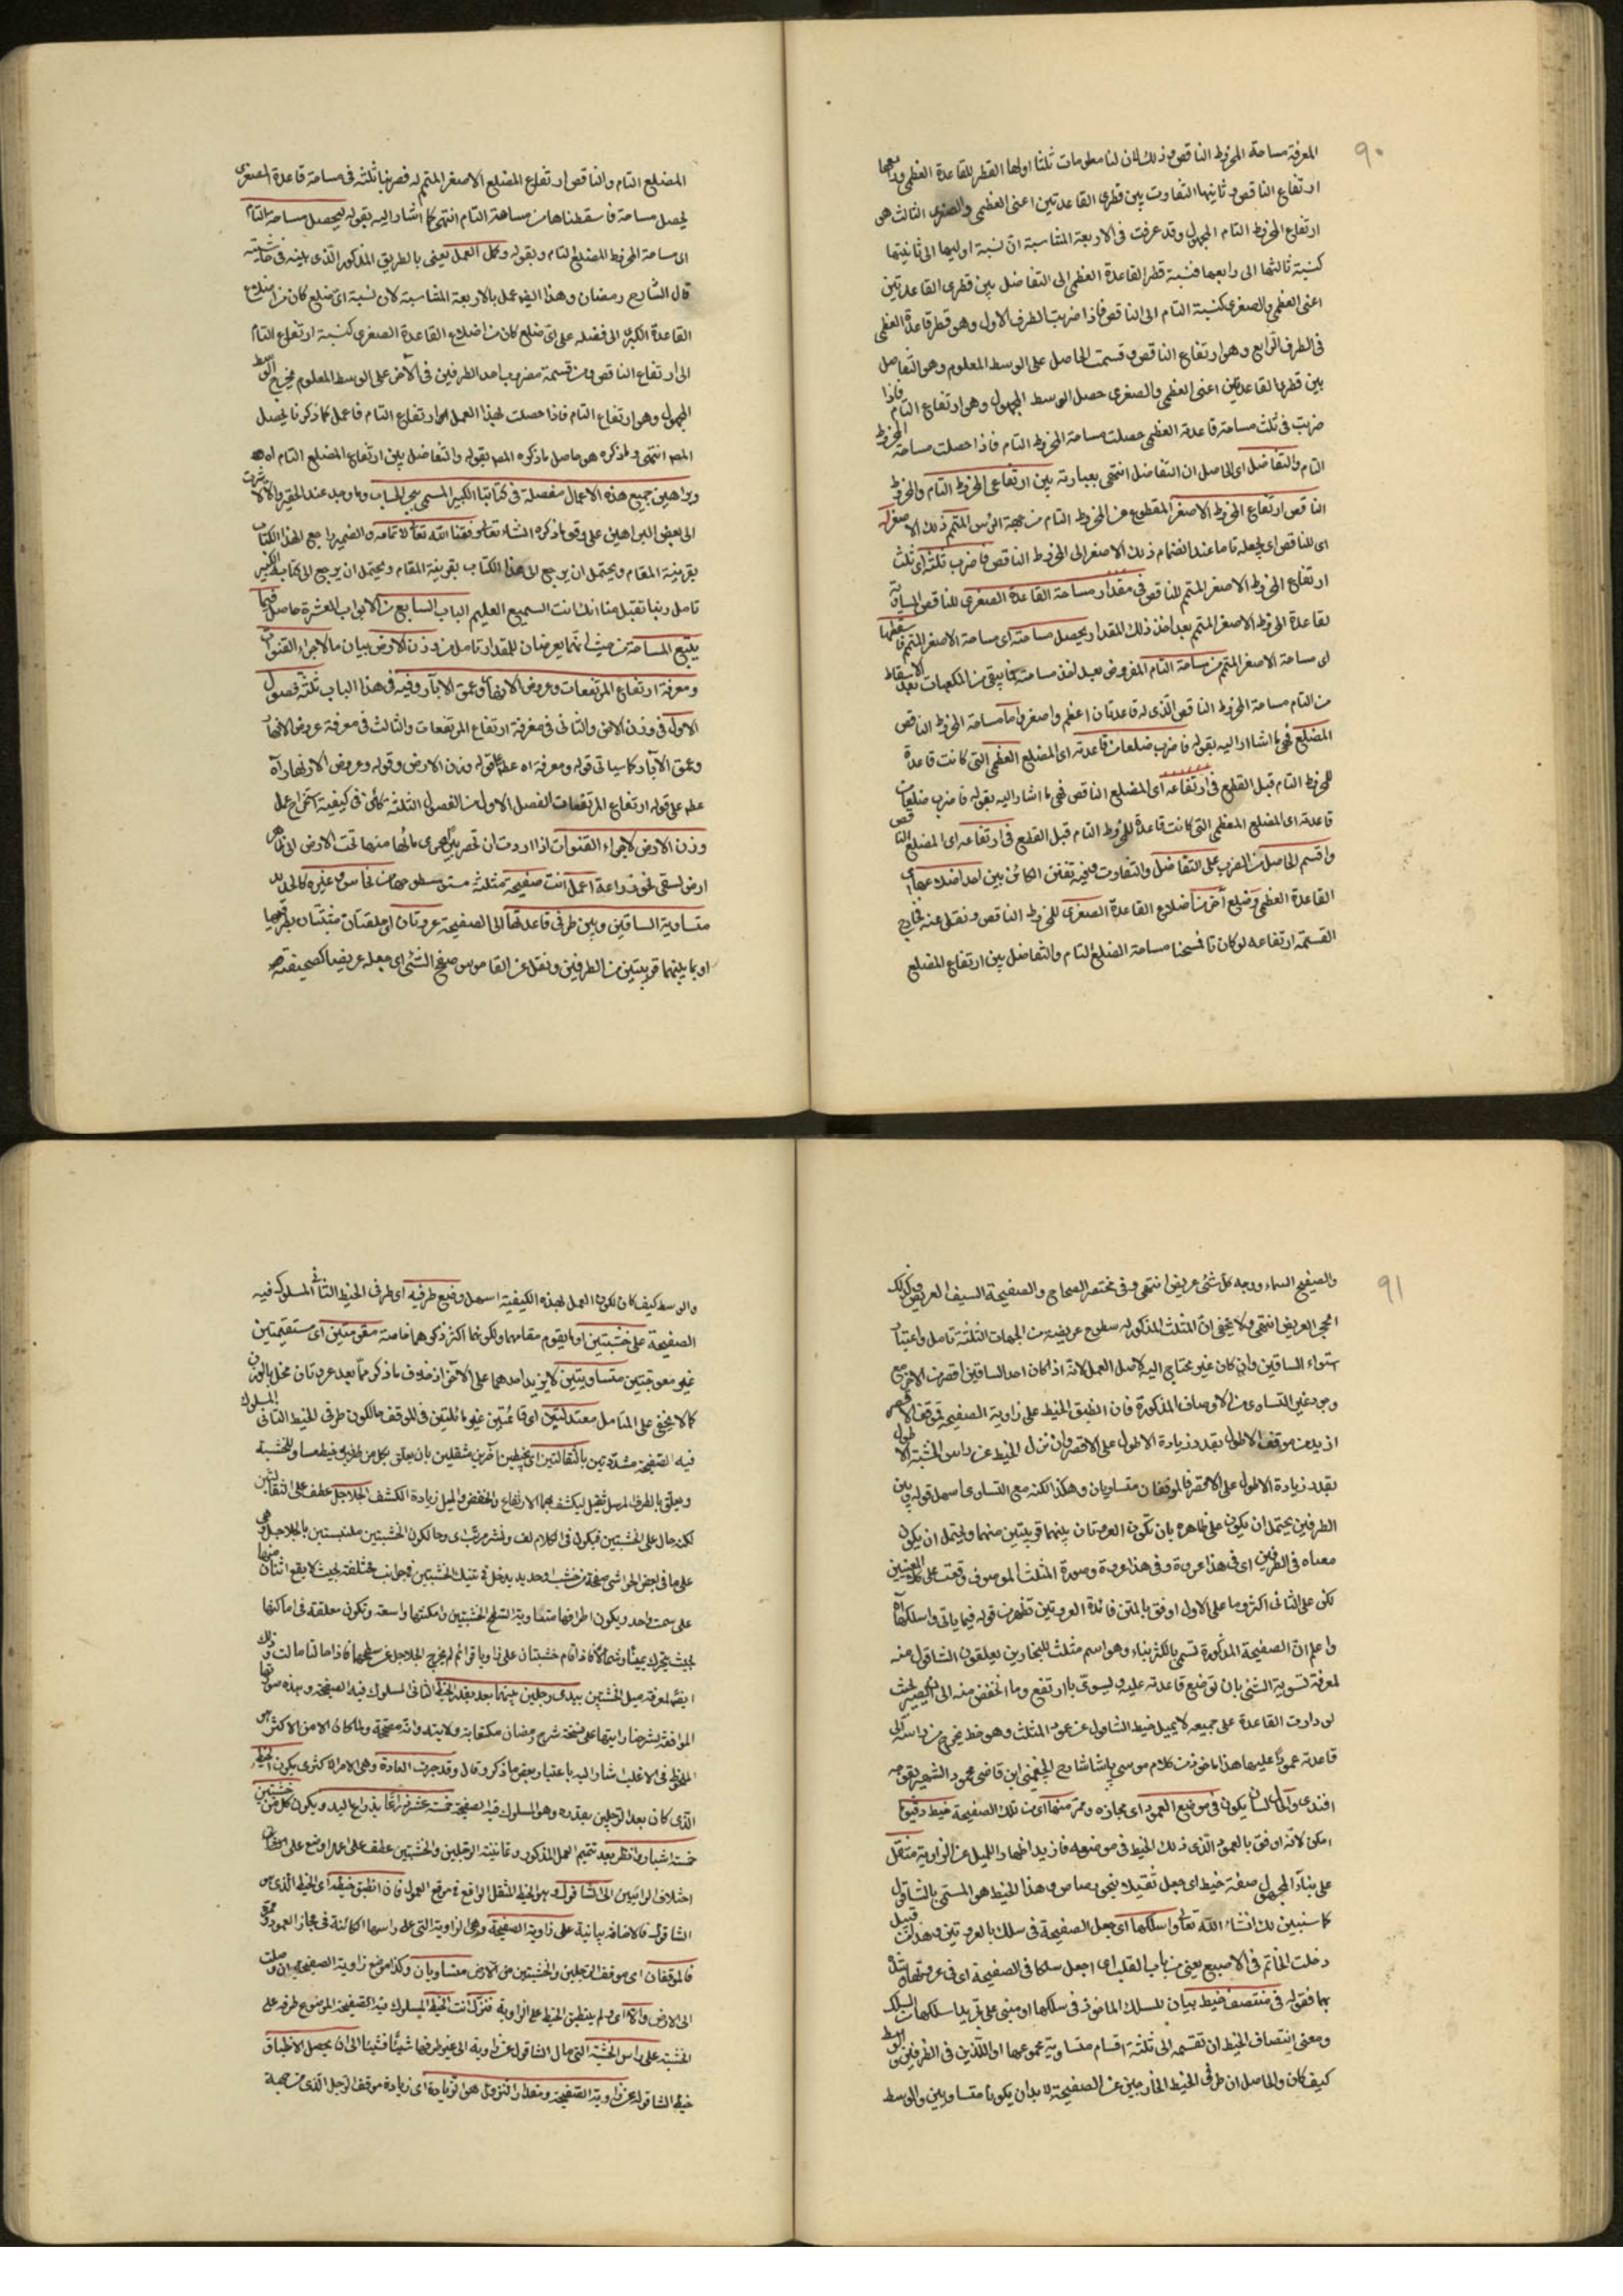 ٩٠
المعرفة مساحة المخروط الناقص وذلك لان لنا معلومات ثلثا اولها القطر للقاعدة العظمى
ارتفاع الناقص وثانيها التفاوت بين قطرى القاعدتين اعنى العظمى والصغرى الثالث هو
ارتفاع المخروط التام المجهول وقد عرفت فى الاربعة المتناسبة ان نسبة اوليها الى ثانيتها
كنسبة ثالثها الى رابعها فنسبة قطر القاعدة العظمى الى التفاضل بين قطرى القاعدتين
اعنى العظمى والصغرى كنسبة التام الى الناقص فاذا ضربت الطرف الاول وهو قطر قاعدة العظمى
فى الطرف الرابع وهو ارتفاع الناقص وقسمت الحاصل على الوسط المعلوم وهو التفاضل
بين قطرى القاعدتين اعنى العظمى والصغرى حصل الوسط المجهول وهو ارتفاع التام فاذا
ضربت فى ثلث مساحة قاعدة العظمى حصلت مساحة المخروط التام فاذا حصلت مساحة المخروط
التام والتفاضل اى الحاصل ان التفاضل انتهى بعبارته بين ارتفاعى المخروط التام والمخروط
الناقص ارتفاع المخروط الاصغر المقطوع من المخروط التام من جهة الرأس المتمم ذلك الاصغر له
اى للناقص اى يجعله تاما عند انضمام ذلك الاصغر الى المخروط الناقص فاضرب ثلثه اى ثلث
ارتفاع المخروط الاصغر المتمم للناقص فى مقدار مساحة القاعدة الصغرى للناقص المساوية
لقاعدة المخروط الاصغر المتمم بعد اخذ ذلك المقدار يحصل مساحته اى مساحة الاصغر المتمم فاسقطها
اى مساحة الاصغر المتمم من مساحة التام المفروض بعد اخذ مساحته فما يبقى من المكعبات بعد الاسقاط
من التام مساحة المخروط الناقص الذى له قاعدتان اعظم واصغر واما مساحة المخروط الناقص
المضلع فهى ما اشار اليه بقوله فاضرب ضلعا من قاعدته اى المضلع العظمى التى كانت قاعدة
للمخروط التام قبل القطع فى ارتفاعه اى المضلع الناقص فهى ما اشار اليه بقوله فاضرب ضلعا من
قاعدته اى المضلع العظمى التى كانت قاعدة للمخروط التام قبل القطع فى ارتفاعه اى المضلع الناقص
واقسم الحاصل من الضرب على التفاضل والتفاوت بين احد اضلاعها اى
القاعدة العظمى وضلع آخر من اضلاع القاعدة الصغرى للمخروط الناقص ونقل عنه فخارج
القسمة ارتفاعه لو كان تاما مساحة المضلع التام والتفاضل بين ارتفاع المضلع
المضلع التام والناقص ارتفاع المضلع الاصغر المتمم له فضربنا ثلثه فى مساحة قاعدة الصغرى
يحصل مساحة فاسقطناها من مساحة التام انتهى كما اشار اليه بقوله ليحصل مساحة التام
اى مساحة المخروط المضلع التام وبقوله وكمل العمل يعنى بالطريق المذكور الذى بينه فى حاشيته
قال الشارح رمضان وهذا ايضا عمل بالاربعة المتناسبة لان نسبة اى ضلع كان من اضلاع
القاعدة الكبرى الى فضله على اى ضلع كان من اضلاع القاعدة الصغرى كنسبة ارتفاع التام
الى ارتفاع الناقص ومن قسمة مضروب احد الطرفين فى الآخر على الوسط المعلوم يخرج الوسط
المجهول وهو ارتفاع التام فاذا حصلت بهذا العمل ارتفاع التام فاعمل كما ذكرنا يحصل
المص انتهى وما ذكره هو حاصل ما ذكره المص بقوله والتفاضل بين ارتفاع المضلع التام اه
وبراهين جميع هذه الاعمال مفصلة فى كتابنا الكبير المسمى ببحر الحساب وما وجد عند الحقير والا لاشرت
الى بعض البراهين على وفق ما ذكره الشارح وفقنا الله تعالى لاتمامه والضمير راجع لهذا الكتاب
بقرينة المقام ويحتمل ان يرجع الى هذا الكتاب بقرينة المقام ويحتمل ان يرجع الى كتابه الكبير
تامل ربنا تقبل منا انك انت السميع العليم الباب السابع من الابواب العشرة حاصل فيما
يتبع المساحة من حيث انهما يعرضان للمقدار تامل من وزن الارض بيان ما لاجراء القنوات
ومعرفة ارتفاع المرتفعات وعروض الانهار وعمق الآبار وفيه فى هذا الباب ثلثة فصول
الاول فى وزن الارض والثانى فى معرفة ارتفاع المرتفعات والثالث فى معرفة عروض الانهار
وعمق الآبار كما سيأتى قوله ومعرفة اه عطف على قوله وزن الارض وقوله وعروض الانهار اه
عطف على قوله ارتفاع المرتفعات الفصل الاول من الفصول الثلثة كائن فى كيفية استخراج عمل
وزن الارض لاجراء القنوات اذا اردت ان مائها منها تحت الارض الى ظاهر
ارض لسقى نحو زراعة اعمل انت صفيحة مثلثة مستو سطوحها من نحاس وغيره كالحديد
متساوية الساقين وبين طرفى قاعدتها الى الصفيحة عروتان او حلقتان مثبتتان بطرفيها
او ما يليهما قريبتين من الطرفين ونقل عن القاموس صفح الشئ اى جعله عريضا كصفيحته
٩١
والصفيح السماء ووجه كل شئ عريض انتهى وفى مختصر الصحاح والصفيحة السيف العريض وكذلك
الحجر العريض انتهى ولا يخفى ان المثلث المذكور له سطوح عريضة من الجهات الثلثة تامل واعتبار
استواء الساقين وان كان غير محتاج اليه لاصل العمل لانه اذا كان احد الساقين اقصر من الآخر مع
وجود غير التساوى من الاوصاف المذكورة فان انطبق الخيط على زاوية الصفيحة فموقف الاقصر
ازيد من موقف الاطول بقدر زيادة الاطول على الاقصر وان نزل الخيط عن رأس الخشبة الاطول
بقدر زيادة الاطول على الاقصر فالموقفان متساويان وهكذا لكنه مع التساوى اسهل قوله وبين
الطرفين يحتمل ان يكون على ظاهره بان تكون العروتان بينهما قريبتين منهما ويحتمل ان يكون
معناه فى الطرفين اى فى هذا عروة وفى هذا عروة وصورة المثلث الموصوف وقعت على كلا المعنيين
لكن على الثانى اكثر وما على الاول اوفق بالمتن فائدة العروتين تظهر من قوله فيما يأتى واسلكها اه
واعلم ان الصفيحة المذكورة تسمى وهو اسم مثلث للنجارين يعلقون الشاقول منه
لمعرفة تسوية الشئ بان توضع قاعدته عليه وليسوى ما ارتفع وما انخفض منه الى ان يصير بحيث
لو دارت القاعدة على جميعه لا يميل خيط الشاقول عن عمود المثلث وهو خط يخرج من رأسه الى
قاعدته عمودا عليها هذا ماخوذ من كلام موسى پاشا شارح الچغمينى ابن قاضى محمود الشهير بقوجه
افندى والحال ان يكون فى موضع العمود اى مجازه وممره منها اى من تلك الصفيحة خيط دقيق
امكن لانه اوفق بالعمود الذى ذلك الخيط فى موضعه فازيد اظهار الميل عن الزاوية مثقل
على بناء المجهول صفة خيط اى جعل ثقيلا بنحو رصاص وهذا الخيط هو المسمى بالشاقول
كما سنبين لك انشاء الله تعالى واسلكها اى اجعل الصفيحة فى سلك بالعروتين وهذا من قبيل
دخلت الخاتم فى الاصبع يعنى من باب القلب اى اجعل سلكا فى الصفيحة اى فى عروتيها
بها فقوله فى منتصف خيط بيان للسلك الماخوذ فى سلكها او مبنى على تجريد اسلكها من السلك
ومعنى انتصاف الخيط ان تقسمه الى ثلثة اقسام متساوية مجموعها او اللذين فى الطرفين والوسط
كيف كان والحاصل ان طرفى الخيط الخارجين عن الصفيحة لا بد ان يكونا متساويين والوسط
والوسط كيف كان لكون العمل بهذه الكيفية اسهل وضع طرفيه اى طرفى الخيط الثانى المسلوك فيه
الصفيحة على خشبتين او ما يقوم مقامهما ولكونهما اكثر ذكرهما خاصة مقومتين اى مستقيمتين
غير معوجتين متساويتين لا يزيد احدهما على الآخر اذ خلاف ما ذكر مما بعد عروتان مخل بالوزن
كما لا يخفى على المتامل معتدلتين اى قائمتين غير مائلتين فى الموقف حالكون طرفى الخيط الثانى المسلوك
فيه الصفيحة مشدودتين بالثقالتين اى بخيطين آخرين مثقلين بان يعلق بكل من طرفيه خيط مساو للخشبة
ويعلق بالطرف المرسل ثقيل ليكشف بهما الارتفاع والخفض والميل زيادة الكشف الجلاجل عطف على الثقالتين
لكنه حال على الخشبتين فيكون فى الكلام لف ونشر مرتب اى وحالكون الخشبتين ملتبستين بالجلاجل وهى
على ما فى بعض الحواشى صفحة من خشب او حديد يدخل فى عتيك الخشبتين فى جوانب مختلفة بحيث لا يقع اثنان منها
على سمت واحد ويكون اطرافها متساوية السطح الخشبتين وامكنتها واسعة وتكون معلقة فى اماكنها
بحيث يتحرك يمينا وشمالا فاذا قام خشبتان على زوايا قوائم لم يخرج الجلاجل عن سطحها فاذا مالتا مالت وذلك
ايضا لمعرفة ميل الخشبتين بيدى رجلين بينهما بعد بقدر الخيط الثانى المسلوك فيه الصفيحة وهذه صورتها
الموافقة لشرحنا رايتها على نسخة شرح رمضان مكتوبة ولا بد وانه مصححة ولما كان الامر الاكثر هو
الملحوظ فى الاغلب اشار اليه باعتبار بعض ما ذكر وقال وقد جرت العادة وهى الامر الاكثرى بكون الخيط
الذى كان بعد الرجلين بقدره وهو المسلوك فيه الصفيحة خمسة عشر ذراعا بذراع اليد وبكون كل من الخشبتين
خمسة اشبار وانظر بعد تتميم العمل المذكور ومعاينة الرجلين والخشبتين عطف على اعمل او ضع على
اختلاف الرأيين الى الشاقول وهو الخيط المثقل الواقع فى موقع العمود فان انطبق خيطه اى الخيط الذى هو
الشاقول فالاضافة بيانية على زاوية الصفيحة وهى الزاوية التى على رأسها الكائنة فى مجاز العمود وممره
فالموقفان اى موقف الرجلين والخشبتين من الارض متساويان وكذا موضع زاوية الصفيحة ان وصلت
الى الارض والا اى ولم ينطبق الخيط على الزاوية فنزل انت الخيط المسلوك فيه الصفيحة الموضوع طرفه على
الخشبة على رأس الخشبة التى مال الشاقول عن زاوية الى غير طرفها شيئا فشيئا الى ان يحصل الانطباق
خيط الشاقول عن زاوية الصفيحة ومقدار النزول هو الزيادة اى زيادة موقف الرجل الذى من جهة